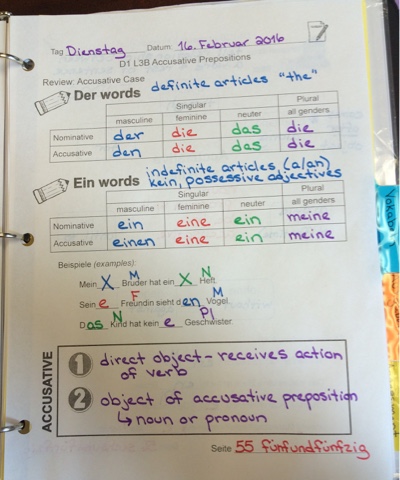 Tag Dienstag Datum: 16. Februar 2016
D1 L3B Accusative Prepositions
Review: Accusative Case
Der words definite articles "the"
Singular Plural
masculine feminine neuter all genders
Nominative der die das die
Accusative den die das die
indefinite articles (a/an)
Ein words kein, possessive adjectives
Singular Plural
masculine feminine neuter all genders
Nominative ein eine ein meine
Accusative einen eine ein meine
Beispiele (examples):
M N
Mein X Bruder hat ein X Heft.
F M
Sein e Freundin sieht den Vogel.
N Pl
Das Kind hat kein e Geschwister.
ACCUSATIVE
1 direct object - receives action
of verb
2 object of accusative preposition
↳ noun or pronoun
Seite 55 fünfundfünfzig